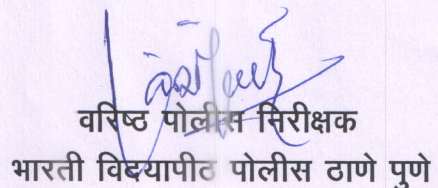 वरिष्ठ पोलीस निरीक्षक
भारती विदयापीठ पोलीस ठाणे पुणे